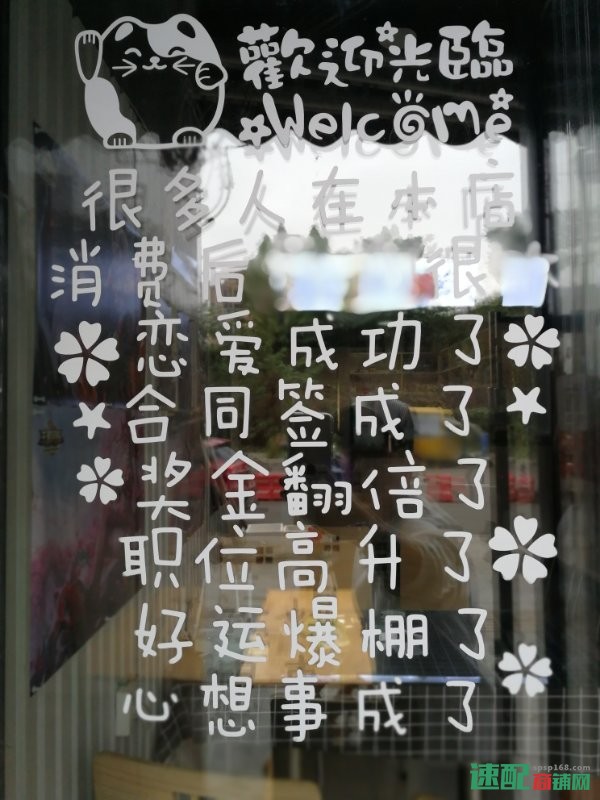 歡迎光臨
Welcome
很多人在本店
消费后 很
恋爱成功了
合同签成了
奖金翻倍了
职位高升了
好运爆棚了
心想事成了
速配商铺网
spsp168.com